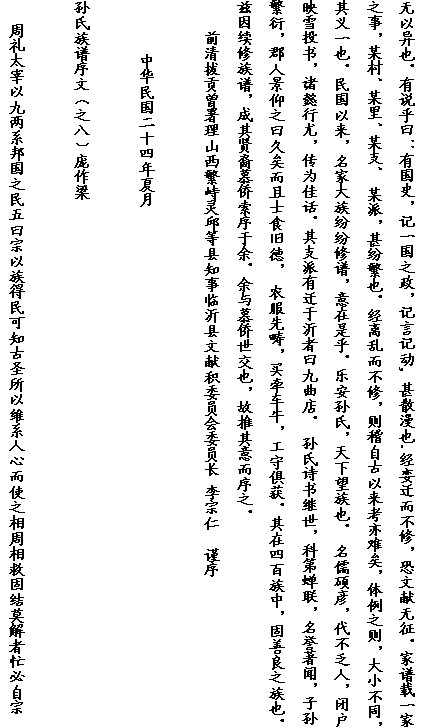 无以异也。有说乎曰：有国史，记一国之政，记言记动，甚散漫也.经娄迁而不修，恐文献无征。家谱载一家
之事，某村、某里、某支、某派，甚纷繁也。经离乱而不修，则稽自古以来考亦难矣，体例之则，大小不同，
其义一也。民国以来，名家大族纷纷修谱，意在是乎。乐安孙氏，天下望族也。名儒硕彦，代不乏人，闭户
映雪投书，诸懿行尤，传为佳话。其支派有迁于沂者曰九曲店。孙氏诗书继世，科第蝉联，名登著闻，子孙
繁衍，郡人景仰之曰久矣而且士食旧德，农服先畴，买牵车牛，工守俱获。其在四百族中，因善良之族也。
兹因续修族谱，成其贤裔慕侨索序于余。余与慕侨世交也，故推其意而序之。
前清拔贡曾署理山西繁峙灵邱等县知事临沂县文献积委员会委员长 李宗仁 谨序
中华民国二十四年夏月
孙氏族谱序文（之八）庞作梁
周礼太宰以九两系邦国之民五曰宗以族得民可知古圣所以维系人心而使之相周相救固结莫解者忙必自宗